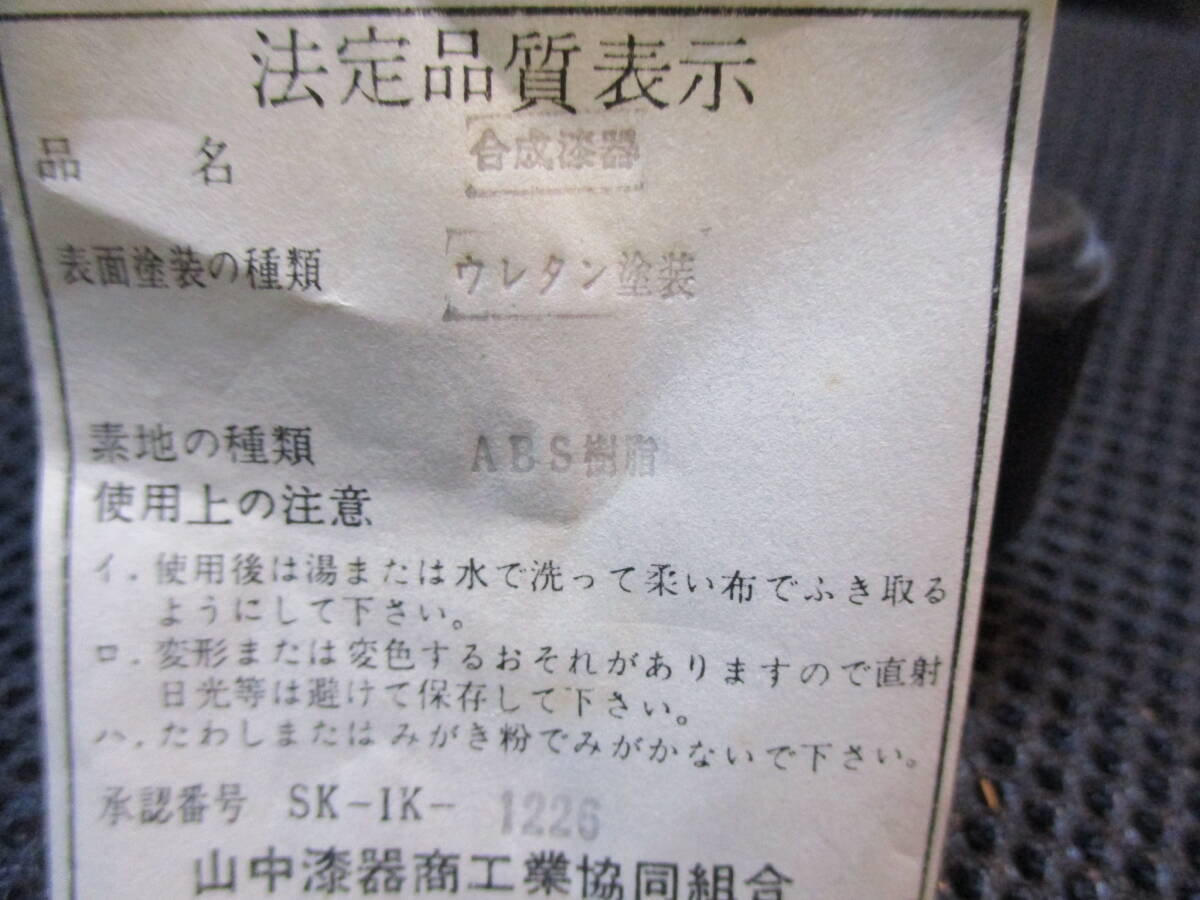 法定品質表示
品名 合成漆器
表面塗装の種類 ウレタン塗装
素地の種類 ABS樹脂
使用上の注意
イ.使用後は湯または水で洗って柔い布でふき取る
ようにして下さい。
ロ.変形または変色するおそれがありますので直射
日光等は避けて保存して下さい。
ハ.たわしまたはみがき粉でみがかないで下さい。
承認番号 SK-IK-1226
山中漆器商工業協同組合